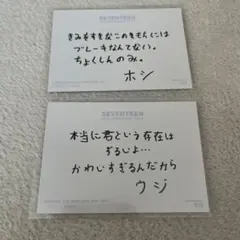 SEVENTEEN
きみをすきなこのきもちには
ブレーキなんてない。
ちょくしんのみ。
ホシ
SEVENTEEN
本当に君という存在は
ずるいよ…
かわいすぎるんだから
ウジ